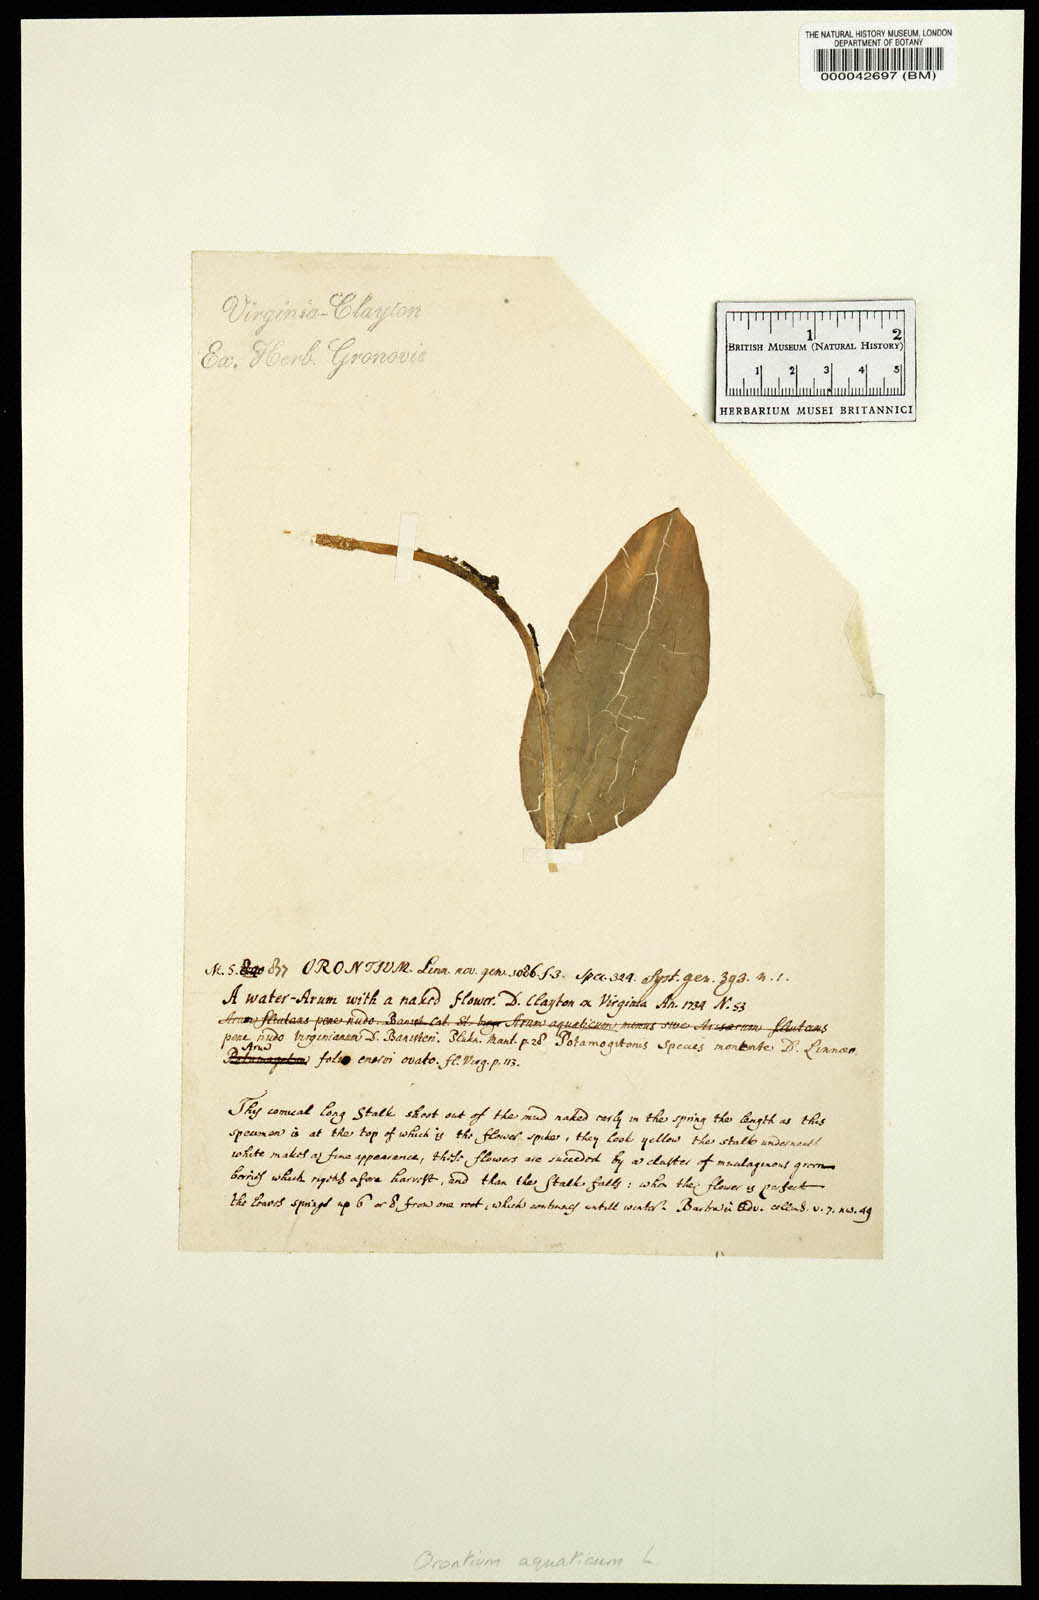 THE NATURAL HISTORY MUSEUM, LONDON
DEPARTMENT OF BOTANY
000042697 (BM)
Virginia-Clayton
Ex. Herb. Gronovii
1 2
BRITISH MUSEUM (NATURAL HISTORY)
1 2 3 4 5
HERBARIUM MUSEI BRITANNICI
N. 5. 837 ORONTIUM. Linn. nov. gen. 1086. f. 3. Spec. 324. Syst. gen. 393. n. 1.
A water-Arum with a naked flower. D. Clayton ex Virginia An. 1734 N. 53
Arum fluitans pene nudo. Banist. Cat. St. Arum aquaticum minus sive Arisarum fluitans
pene nudo virginianum D. Banisteri. Plukn. Mant. p. 28 Potamogitonis species monente D. Linnæo.
Arum
Potamogeton folio enervi ovato. fl. Virg. p. 113.
This conical long Stalk shoot out of the mud naked early in the spring the length as this
specimen is at the top of which is the flower spike, they look yellow the stalk underneath
white makes a fine appearance, these flowers are succeded by a cluster of mucilaginous green
berries which ripens afore harvest, and than the Stalk falls: when the flower is perfect
the leaves springs up 6 or 8 from one root, which continues untill winter. v. 7. no. 49
Orontium aquaticum L